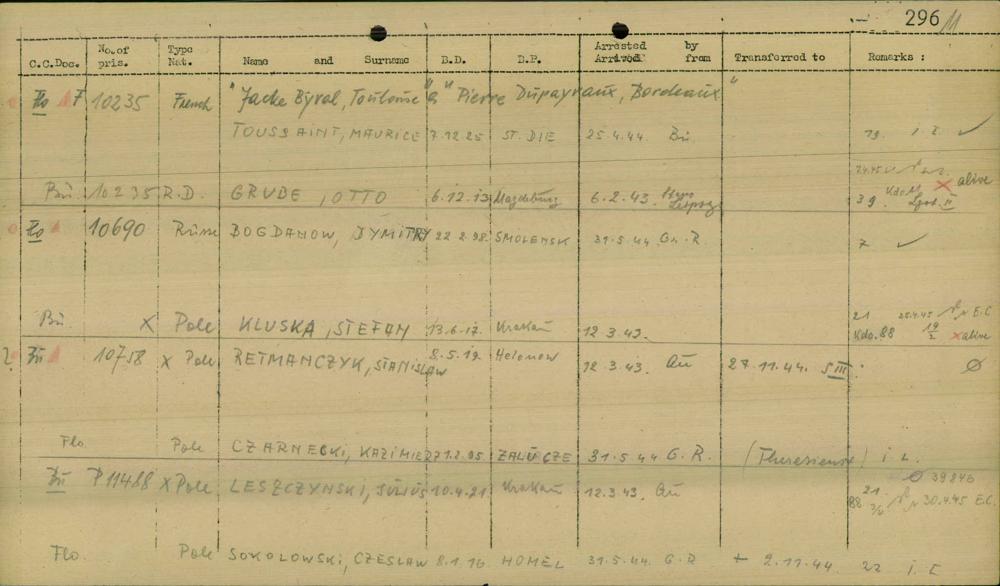 296
C.C.Doc. No.of pris. Type Nat. Name and Surname B.D. B.P. Arrested Arrived by from Transferred to Remarks :
Flo F 10235 French "Jacke Byral, Toulouse" & "Pierre Dupayraux, Bordeaux"
TOUSSAINT, MAURICE 7.12.25 ST. DIE 25.4.44 Bu. 19. i.L. ✓
alive
Bu. 10235 R.D. GRUBE, OTTO 6.12.13 Magdeburg 6.2.43. Leipzig 39.
Flo 10690 Russe BOGDANOW, DYMITRY 22.2.98. SMOLENSK 31.5.44 Gr.R. 7 ✓
Bu. X Pole KLUSKA, STEFAN 13.6.17. Krakau 12.3.43. 21 25.4.45 E.C
Kdo.88 X alive
? Bu 10758 X Pole RETMANCZYK, STANISLAW 8.5.19. Helenow 12.3.43. Au 27.11.44. SIII. Ø
Flo. Pole CZARNECKI, KAZIMIERZ 1.2.05 ZALUCZE 31.5.44 G.R. (Theresienst) i.L.
Ø 39846
Bu P11488 X Pole LESZCZYNSKI, JULIUS 10.4.21. Krakau 12.3.43. Au 21.
88 30.4.45 E.C.
Flo. Pole SOKOLOWSKI, CZESLAW 8.1.16. HOMEL 31.5.44. G.R + 2.11.44. 22 i.L